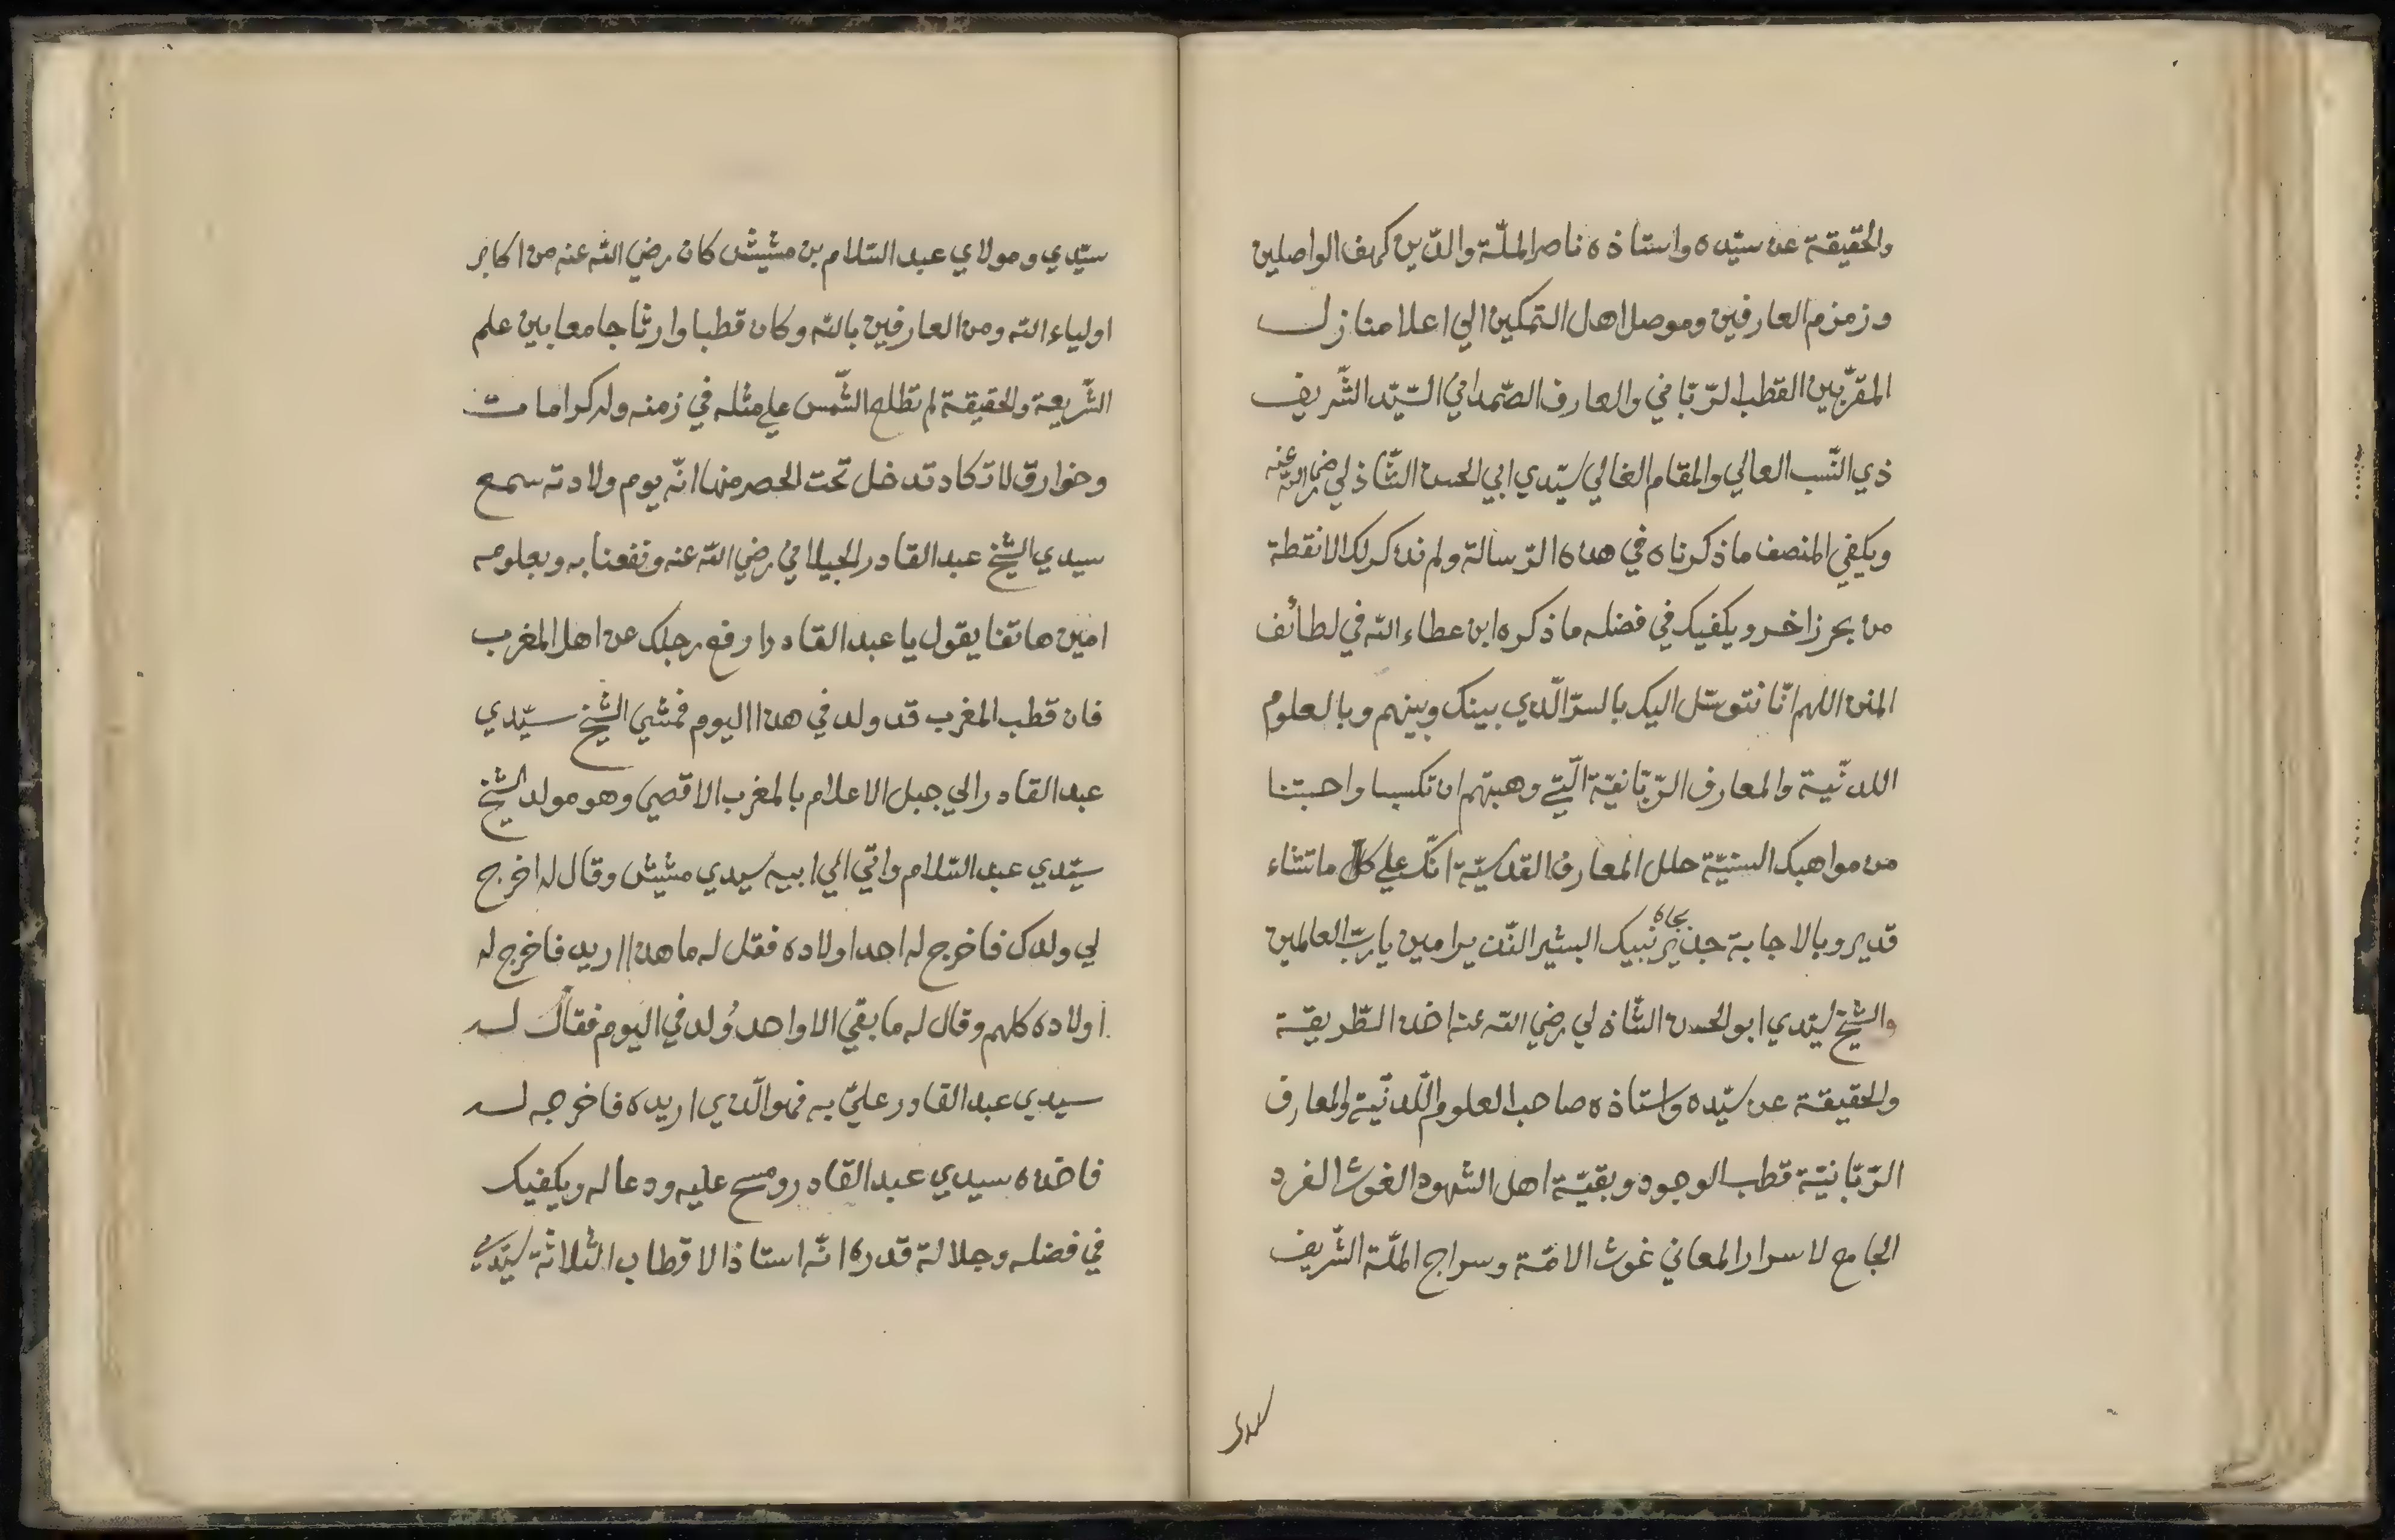 والحقيقة عن سيّده واستاذه ناصر الملّة والدّين كهف الواصلين
وزمزم العارفين وموصل اهل التمكين الي اعلا منازل
المقرّبين القطب الرّبّاني والعارف الصّمداني السّيّد الشّريف
ذي النّسب العالي والمقام الغالي سيّدي ابي الحسن الشّاذلي رضي اللّه عنه
ويكفي المنصف ما ذكرناه في هذه الرّسالة ولم نذكر لك الا نقطة
من بحر زاخر ويكفيك في فضله ما ذكره ابن عطاء اللّه في لطائف
المنن اللهم انّا نتوسّل اليك بالسرّ الّذي بينك وبينهم وبالعلوم
اللدنّية والمعارف الرّبّانيّة الّتي وهبتهم ان تكسبنا واحبتنا
من مواهبك السنيّة حلل المعارف القدسيّة انّك علي كل ما تشاء
قدير وبالاجابة جدير بجاه نبيك البشير النّذير امين يا ربّ العالمين
والشيخ سيّدي ابو الحسن الشّاذلي رضي اللّه عنه اخذ الطّريقة
والحقيقة عن سيّده واستاذه صاحب العلوم اللّدنّية والمعارف
الرّبّانيّة قطب الوجود وبقيّة اهل الشهود الغوث الفرد
الجامع لاسرار المعاني غوث الامّة وسراج الملّة الشّريف
سيدي
سيّدي ومولاي عبد السّلام بن مشيش كان رضي اللّه عنه من اكابر
اولياء اللّه ومن العارفين باللّه وكان قطبا وارثا جامعا بين علم
الشّريعة والحقيقة لم تطلع الشّمس علي مثله في زمنه وله كرامات
وخوارق لا تكاد تدخل تحت الحصر منها انّه يوم ولادته سمع
سيدي الشّيخ عبد القادر الجيلاني رضي اللّه عنه ونفعنا به وبعلومه
امين هاتفا يقول يا عبد القادر ارفع رجلك عن اهل المغرب
فان قطب المغرب قد ولد في هذا اليوم فمشي الشّيخ سيّدي
عبد القادر الي جبل الاعلام بالمغرب الاقصي وهو مولد الشّيخ
سيّدي عبد السّلام واتي الي ابيه سيدي مشيش وقال له اخرج
لي ولدك فاخرج له احد اولاده فقل له ما هذا اريد فاخرج له
اولاده كلهم وقال له ما بقي الا واحد وُلد في اليوم فقال له
سيدي عبد القادر عليّ به فهو الّذي اريده فاخرجه له
فاخذه سيدي عبد القادر ومسح عليه ودعا له ويكفيك
في فضله وجلالة قدره انّه استاذ الاقطاب الثّلاثة سيّدي